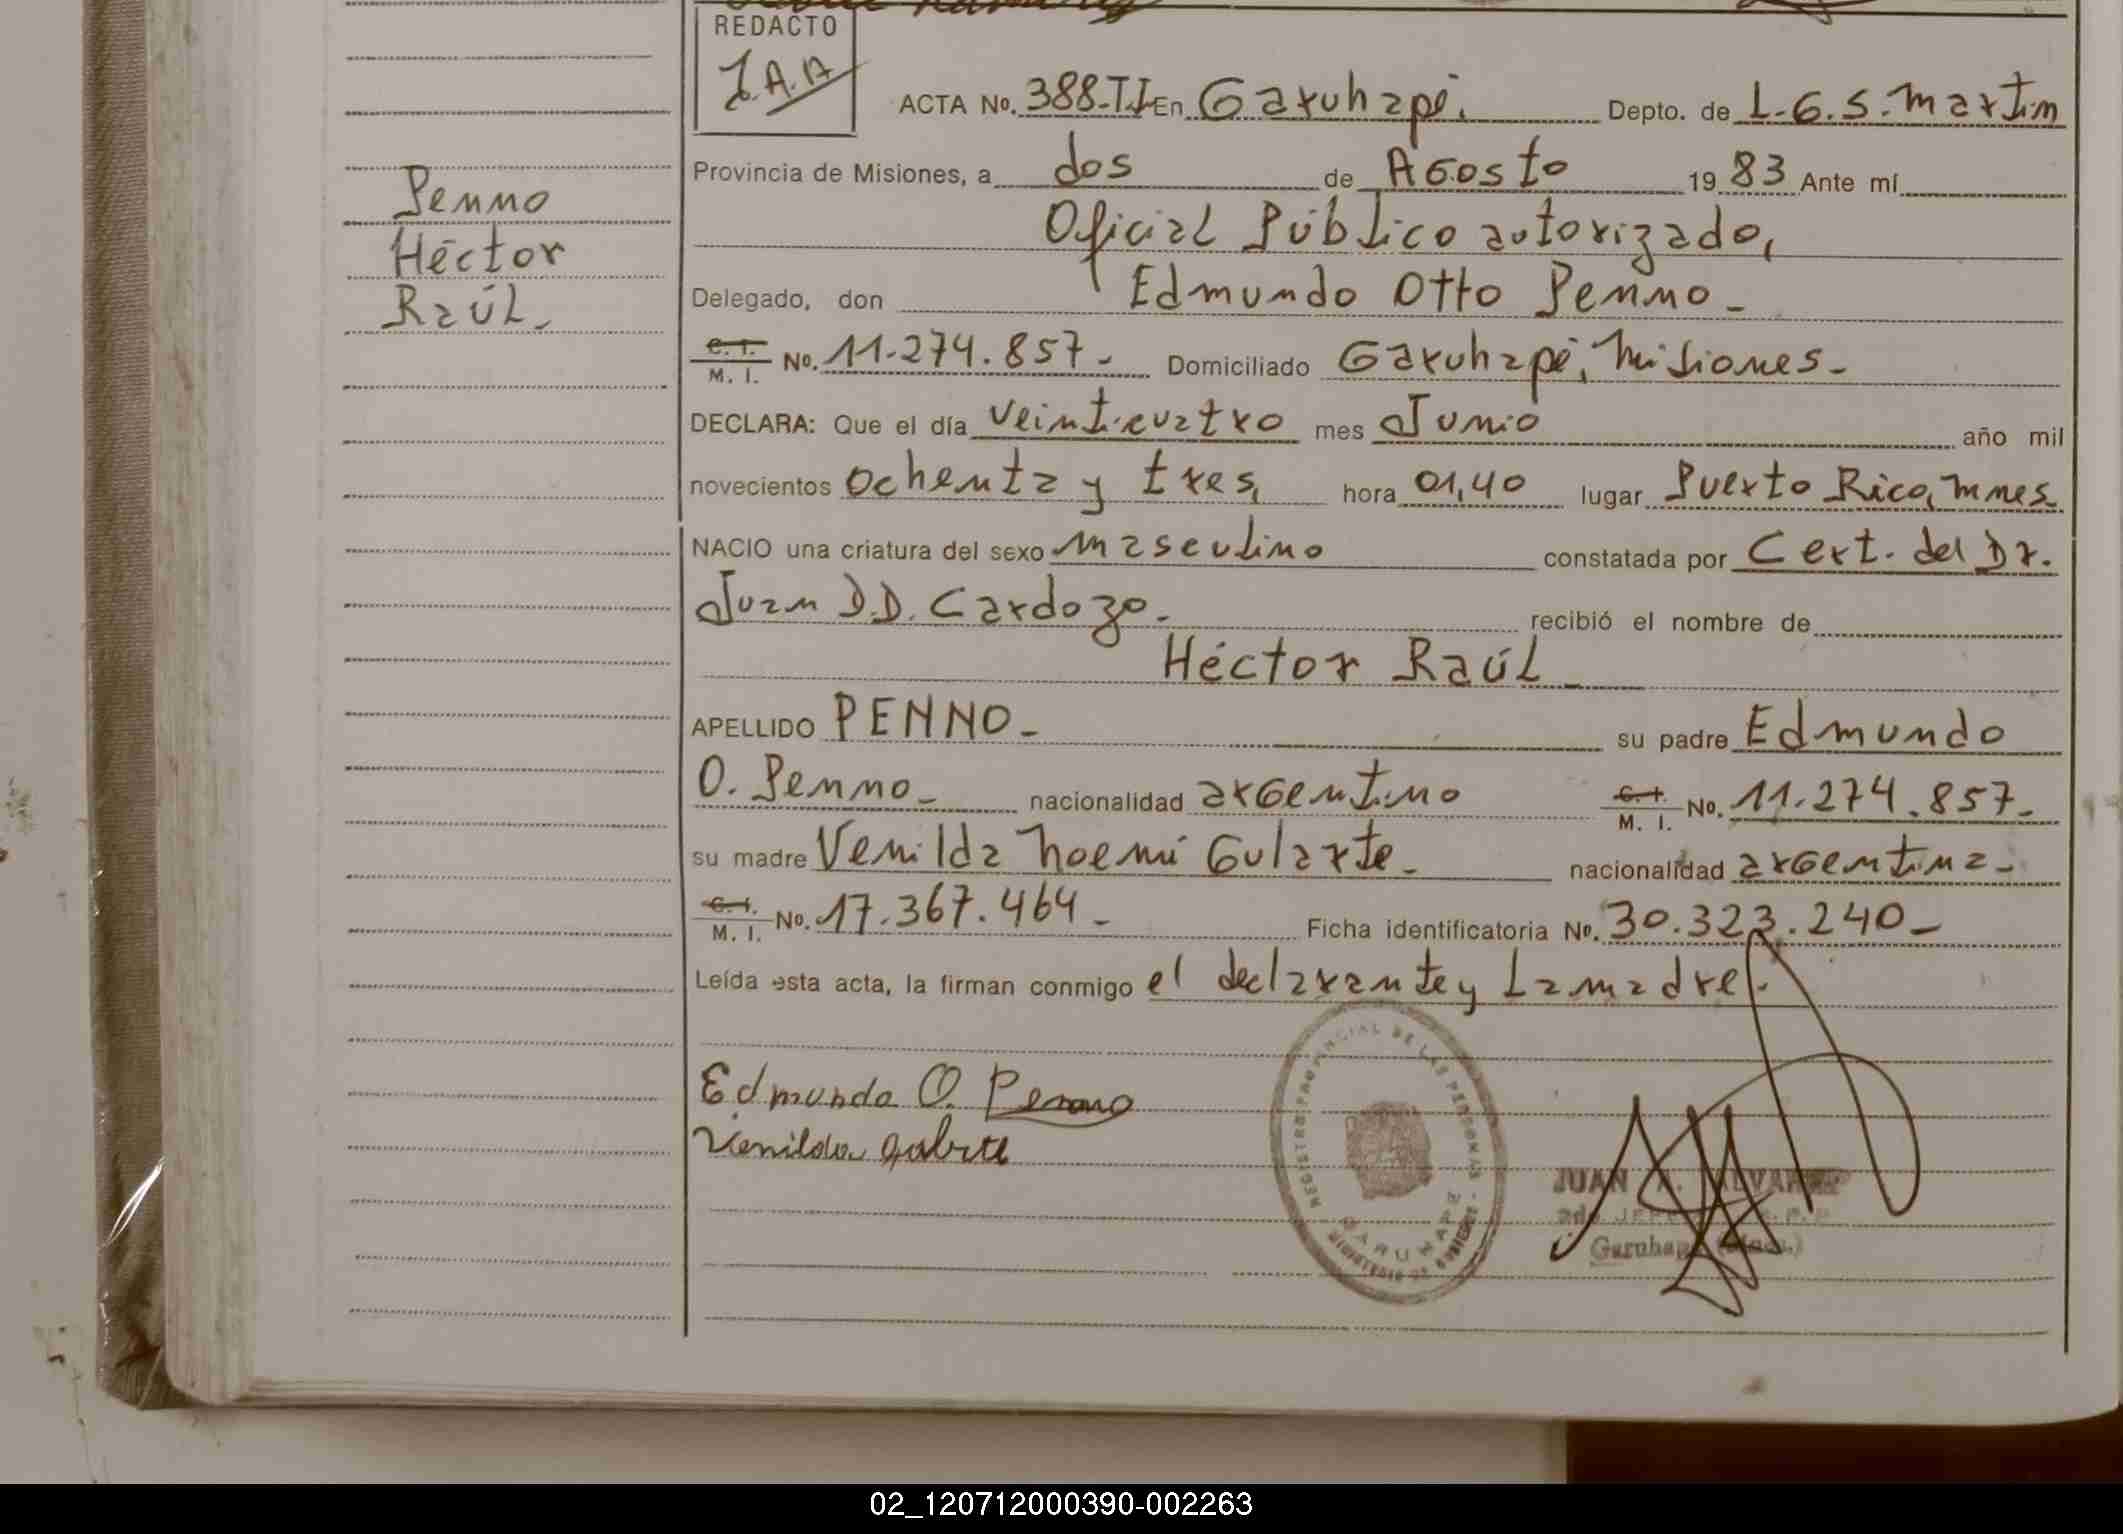 REDACTO
J.A.A
ACTA No. 388-TI En Garuhapé. Depto. de L.G.S. Martin
Provincia de Misiones, a dos de Agosto 1983 Ante mí
Oficial Público autorizado,
Delegado, don Edmundo Otto Penno -
C. I. M. I. No. 11.274.857.- Domiciliado Garuhapé, Misiones.-
DECLARA: Que el día veinticuatro mes Junio año mil
novecientos ochenta y tres, hora 01,40 lugar Puerto Rico, Mnes.
NACIO una criatura del sexo masculino constatada por Cert. del Dr.
Juan D.D. Cardozo.- recibió el nombre de
Héctor Raúl -
APELLIDO PENNO - su padre Edmundo
O. Penno - nacionalidad argentino C. I. M. I. No. 11.274.857.-
su madre Venilda Noemí Gularte.- nacionalidad argentina -
C. I. M. I. No. 17.367.464 - Ficha identificatoria No. 30.323.240 -
Leída esta acta, la firman conmigo el declarante y La madre.
Penno
Héctor
Raúl.-
Edmundo O. Penno
Venilda
REGISTRO PROVINCIAL DE LAS PERSONAS
GARUHAPE
MINISTERIO DE GOBIERNO
JUAN A. ALVAREZ
Garuhapé (Mnes.)
02_120712000390-002263